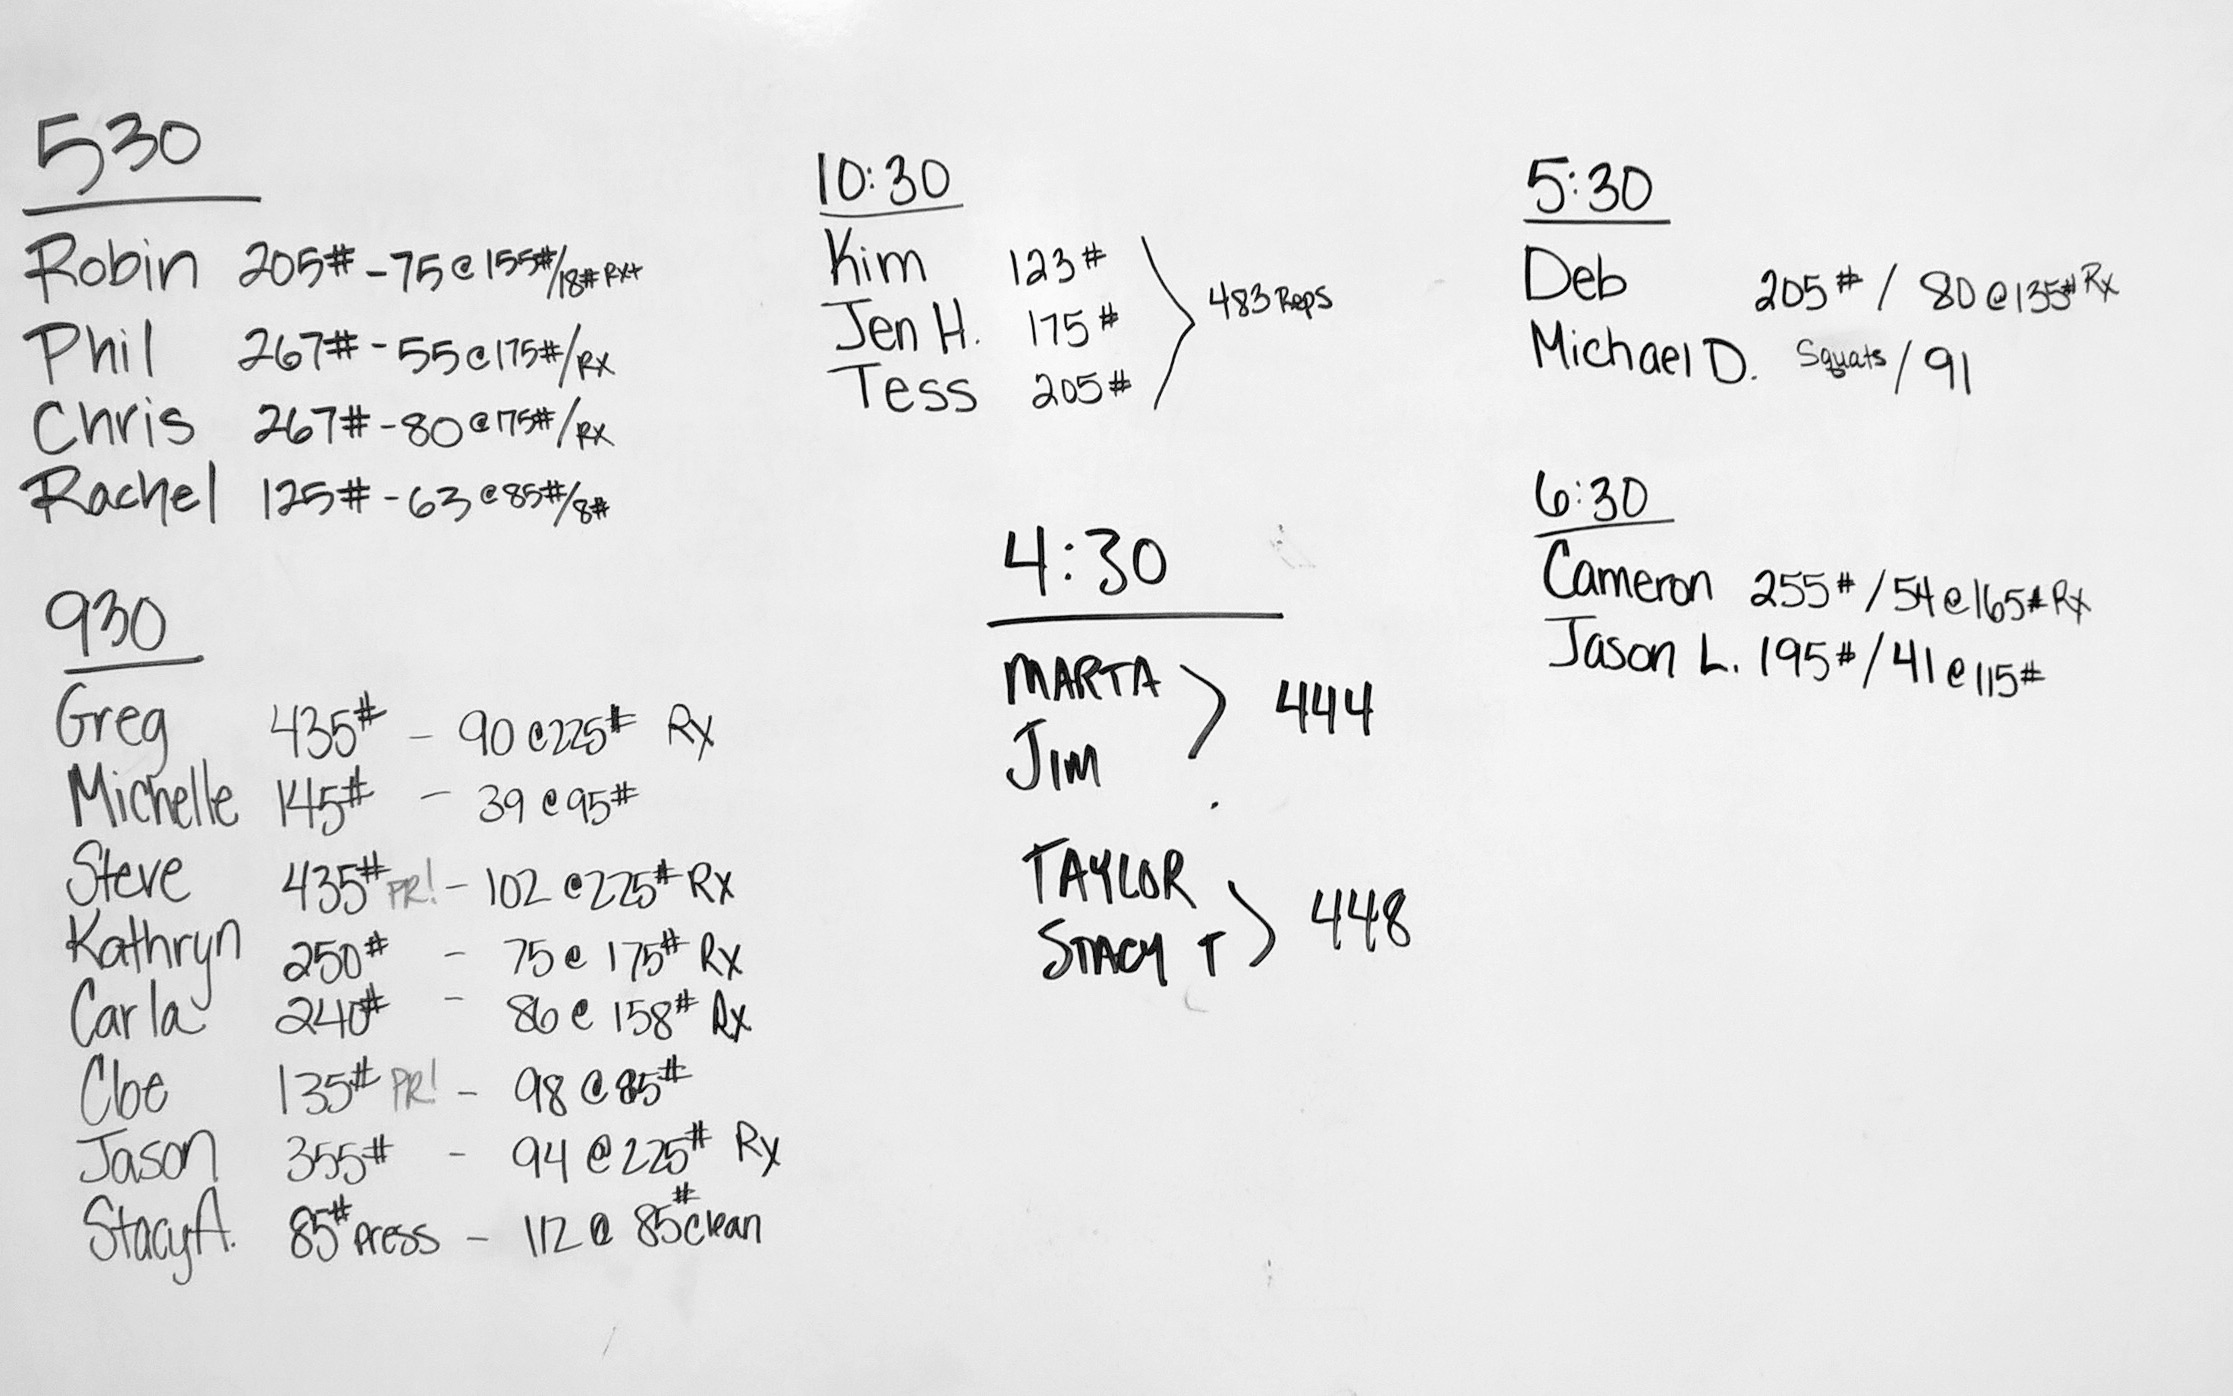 530
Robin 205# - 75 @ 155#/18# RX+
Phil 267# - 55 @ 175#/RX
Chris 267# - 80 @ 175#/RX
Rachel 125# - 63 @ 85#/8#
930
Greg 435# - 90 @ 225# Rx
Michelle 145# - 39 @ 95#
Steve 435# PR! - 102 @ 225# Rx
Kathryn 250# - 75 @ 175# Rx
Carla 240# - 86 @ 158# Rx
Cloe 135# PR! - 98 @ 85#
Jason 355# - 94 @ 225# Rx
Stacy A. 85# press - 112 @ 85# clean
10:30
Kim 123#
Jen H. 175# 483 Reps
Tess 205#
4:30
MARTA
JIM 444
TAYLOR
STACY T 448
5:30
Deb 205# / 80 @ 135# Rx
Michael D. Squats / 91
6:30
Cameron 255# / 54 @ 165# Rx
Jason L. 195# / 41 @ 115#